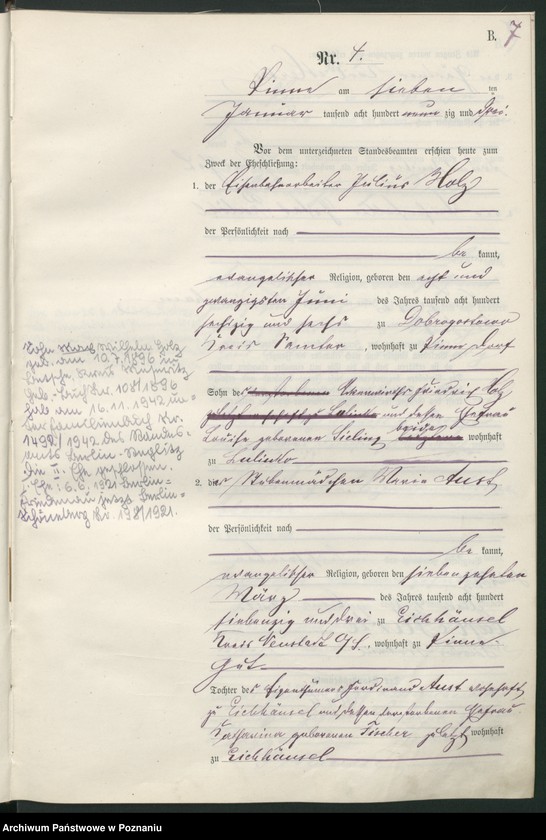 B. 7
Nr. 4.
Pinne am sieben ten
Januar tausend acht hundert neunzig und drei.
Vor dem unterzeichneten Standesbeamten erschien heute zum
Zweck der Eheschließung:
1. der Eisenbahnarbeiter Julius Holz
der Persönlichkeit nach
be kannt,
evangelischer Religion, geboren den acht und
zwanzigsten Juni des Jahres tausend acht hundert
sechzig und sechs zu Dobrogostowo
Kreis Samter, wohnhaft zu Pinne Dorf
Sohn des Friedrich Holz
und dessen Ehefrau
Louise geborenen beide wohnhaft
zu Lubinko
2. die Stubenmädchen Marie Aust
der Persönlichkeit nach
be kannt,
evangelischer Religion, geboren den siebenzehnten
März des Jahres tausend acht hundert
siebenzig und drei zu Eichhäusel
Kreis Neustadt, wohnhaft zu Pinne-
Gut
Tochter des Eigenthümers Ferdinand Aust wohnhaft
zu Eichhäusel und dessen verstorbenen Ehefrau
Catharina geborenen Fischer zuletzt wohnhaft
zu Eichhäusel
Sohn Wilhelm Holz
geb. am 19.7.1896 in
Betsche, Kreis Meseritz
Geb. Reich Nr. 108/1896
hat am 16.11.1942 un-
ter Familienbuch Nr.
1492/1942 des Standes-
amts Berlin-Steglitz
die II. Ehe geschlossen.
I. Ehe: 6.6.1921 Berlin-
Friedenau jetzt Berlin-
Schöneberg Nr. 198/1921.
Archiwum Państwowe w Poznaniu